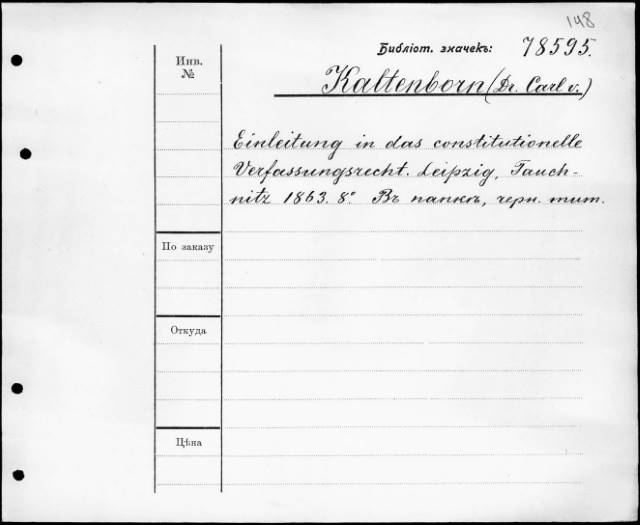 148
Библіот. значекъ: 78595.
Инв.
№
Kaltenborn (Dr. Carl v.)
Einleitung in das constitutionelle
Verfassungsrecht. Leipzig, Tauch-
nitz 1863. 8º. Въ папкѣ, черн. тит.
По заказу
Откуда
Цѣна